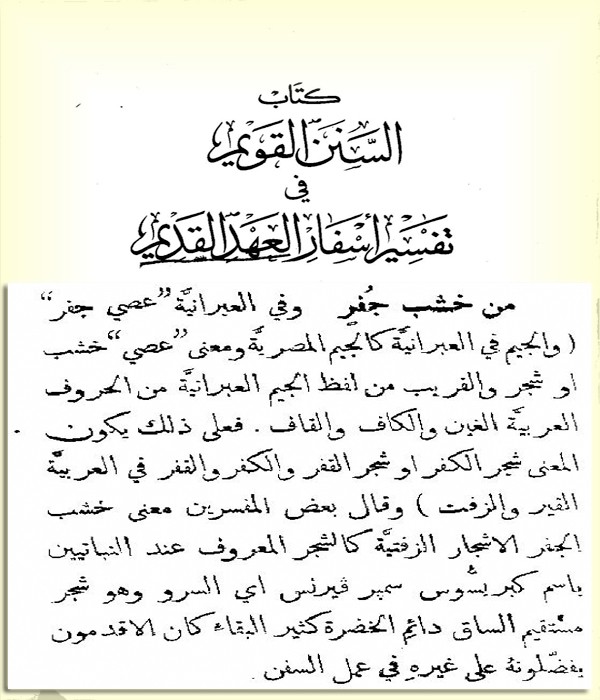 كتاب
السنن القويم
في
تفسير أسفار العهد القديم
من خشب جُفرٍ وفي العبرانيَّة ”عصي جفر“
( والجيم في العبرانيَّة كالجيم المصريَّة ومعنى ”عصي“ خشب
او شجر والقريب من لفظ الجيم العبرانيَّة من الحروف
العربيَّة الغين والكاف والقاف . فعلى ذلك يكون
المعنى شجر الكفر او شجر القفر والكفر والقفر في العربيَّة
القير والزفت ) وقال بعض المفسرين معنى خشب
الجفر الاشجار الزفتيَّة كالشجر المعروف عند النباتيين
باسم كبريسُّوس سمپر ڤيرنس اي السرو وهو شجر
مستقيم الساق دائم الخضرة كثير البقاء كان الاقدمون
يفضّلونهُ على غيرهِ في عمل السفن